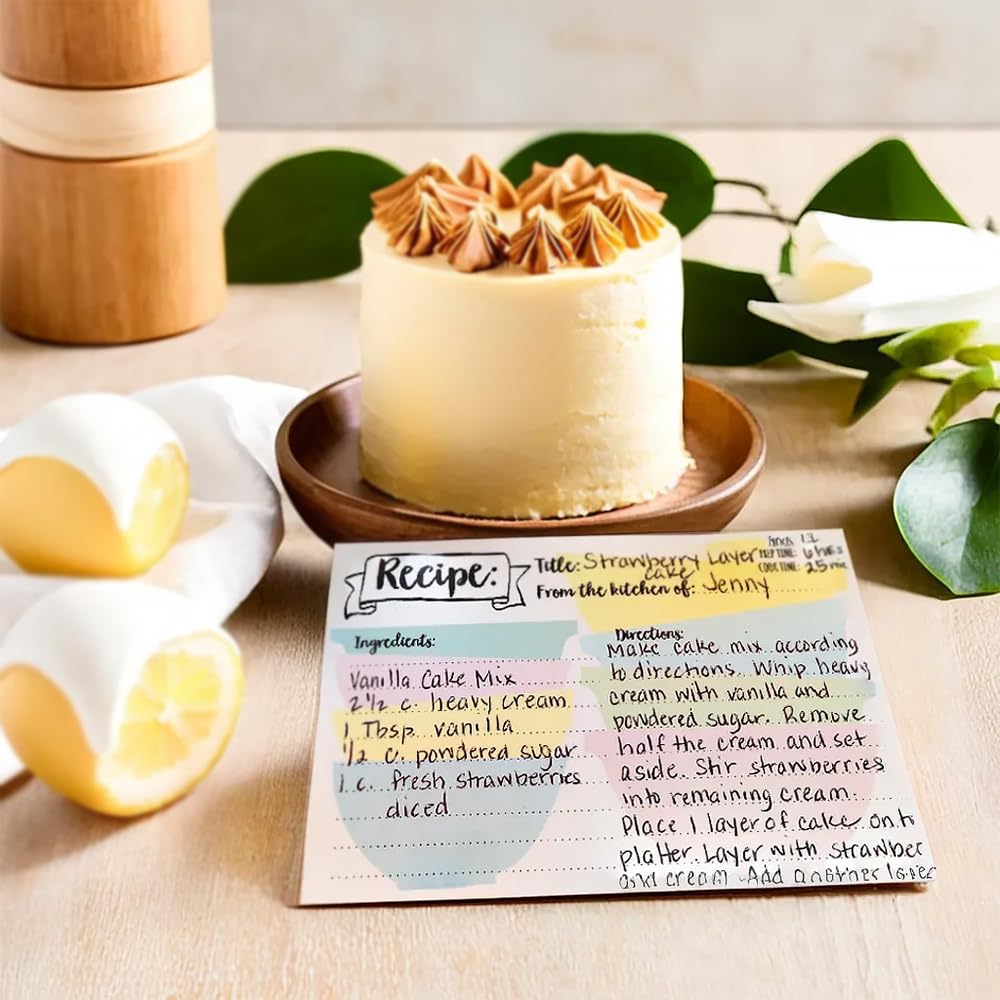 Recipe:
Title: Strawberry Layer
cake
From the kitchen of: Jenny
PREP TIME: 6 hrs
COOK TIME: 25 min
Ingredients:
Vanilla Cake Mix
2 1/2 c. heavy cream
1 Tbsp vanilla
1/2 c. powdered sugar
1 c. fresh strawberries
diced
Directions:
Make cake mix according
to directions. Whip heavy
cream with vanilla and
powdered sugar. Remove
half the cream and set
aside. Stir strawberries
into remaining cream.
Place 1 layer of cake onto
platter. Layer with strawber
and cream. Add another layer